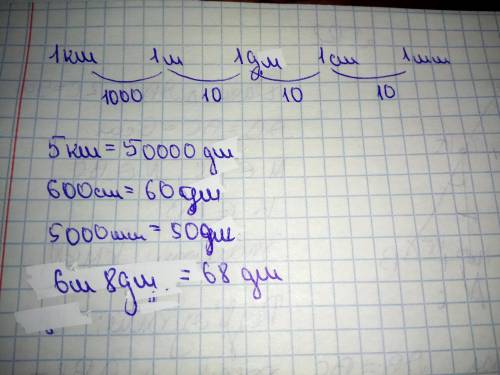 1км 1м 1дм 1см 1мм
1000 10 10 10
5км = 50000 дм
600см = 60 дм
5000мм = 50дм
6м 8дм. = 68 дм